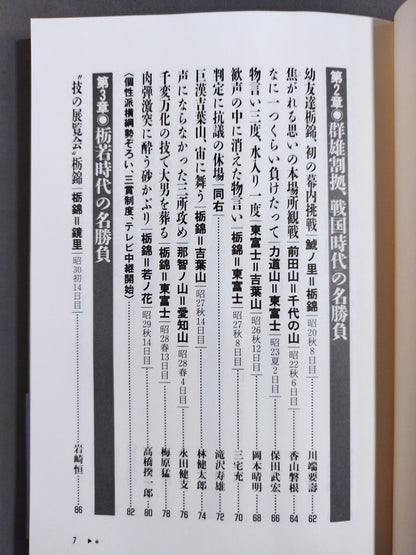 第2章●群雄割拠、戦国時代の名勝負
幼友達栃錦、初の幕内挑戦 鯱ノ里＝栃錦 [昭20秋8日目]……川端要壽 62
焦がれる思いの本場所観戦 前田山＝千代の山 [昭22秋6日目]……香山磐根 64
なに一つくらい負けたって 力道山＝東富士 [昭23夏2日目]……保田武宏 66
物言い三度、水入り一度 東富士＝吉葉山 [昭26秋12日目]……岡本晴明 68
歓声の中に消えた物言い 栃錦＝東富士 [昭27秋8日目]……三宅充 70
判定に抗議の休場 [同右]……滝沢寿雄 72
巨漢吉葉山、宙に舞う 栃錦＝吉葉山 [昭27秋14日目]……林健太郎 74
声にならなかった三所攻め 那智ノ山＝愛知山 [昭28春4日目]……永田健支 76
千変万化の技で大男を葬る 栃錦＝東富士 [昭28春13日目]……梅原猛 78
肉弾激突に酔う砂かぶり 栃錦＝若ノ花 [昭29秋14日目]……高橋揆一郎 80
〈個性派横綱勢ぞろい、三賞制度、テレビ中継開始〉……82
第3章●栃若時代の名勝負
“技の展覧会”栃錦 栃錦＝鏡里 [昭30初14日目]……岩崎恒 86
7 ▶●